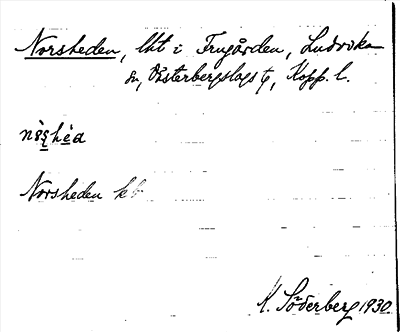 Norsheden, lht i Frugården, Ludvika
sn, Västerbergslags tg, Kopp. l.
Norsheden kb
K. Söderberg 1930